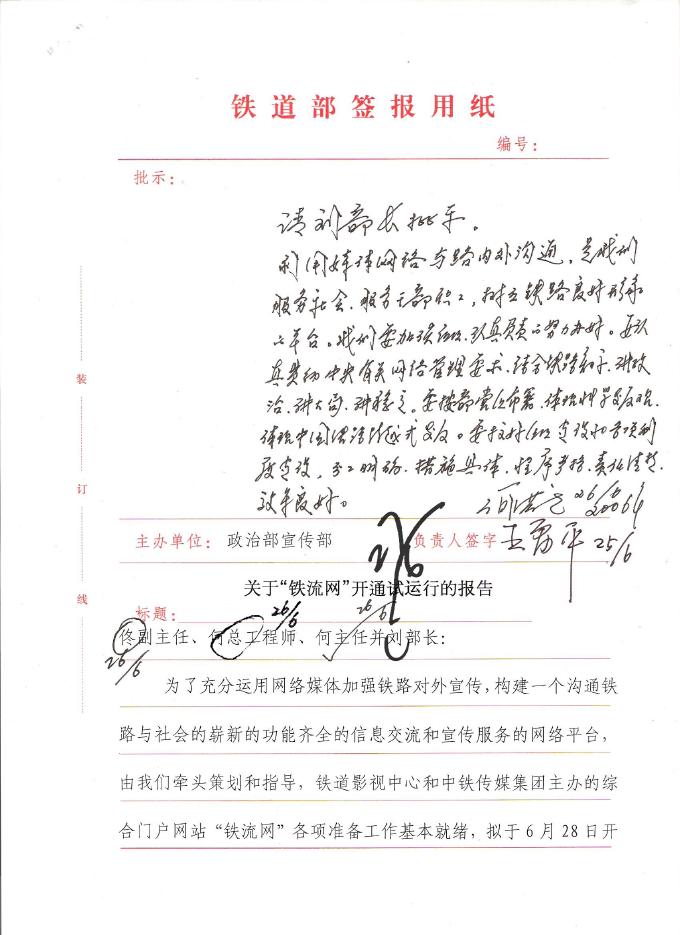 铁道部签报用纸
编号：
批示：
请刘部长批示。
利用媒体网络与路内外沟通，是我们
服务社会、服务干部职工，树立铁路良好形象
平台。我们要加强组织，认真负责努力办好。要认
真贯彻中央有关网络管理要求，结合铁路和，讲政
治、讲大局、讲稳定。要按部党组布署，体现科学发展观，
体现中国铁路跨越式发展。要支持组建设和各项制
度建设，分工明确、措施具体、程序严格、责任清楚、
效率良好。
26/6
2006
装
订
线
主办单位：政治部宣传部 负责人签字 王勇平 25/6
关于“铁流网”开通试运行的报告
标题：
26/6
26/6
佟副主任、何总工程师、何主任并刘部长：
26/6
为了充分运用网络媒体加强铁路对外宣传，构建一个沟通铁
路与社会的崭新的功能齐全的信息交流和宣传服务的网络平台，
由我们牵头策划和指导，铁道影视中心和中铁传媒集团主办的综
合门户网站“铁流网”各项准备工作基本就绪，拟于6月28日开